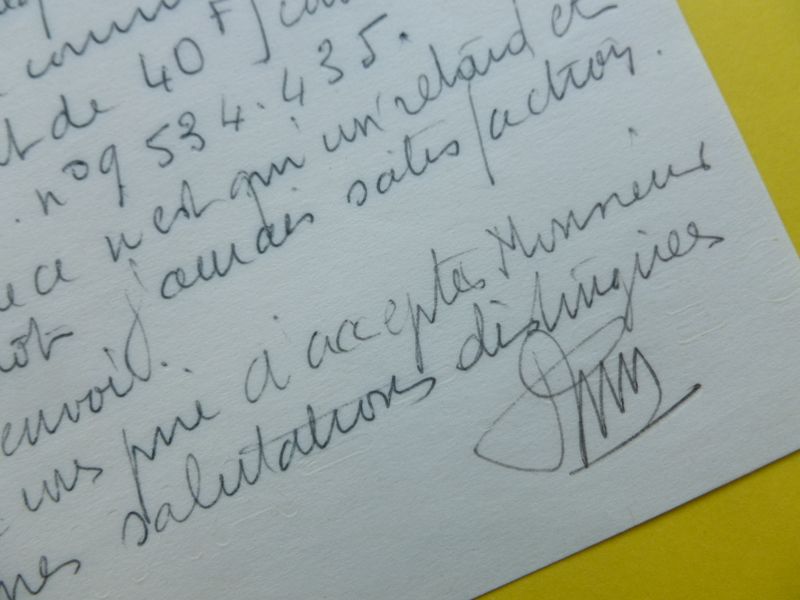 de 40F
. n° 9 534.435.
ce n'est qu'un retard et
jamais satisfaction.
envoi.
vous prie d'accepter Monsieur
mes salutations distinguées